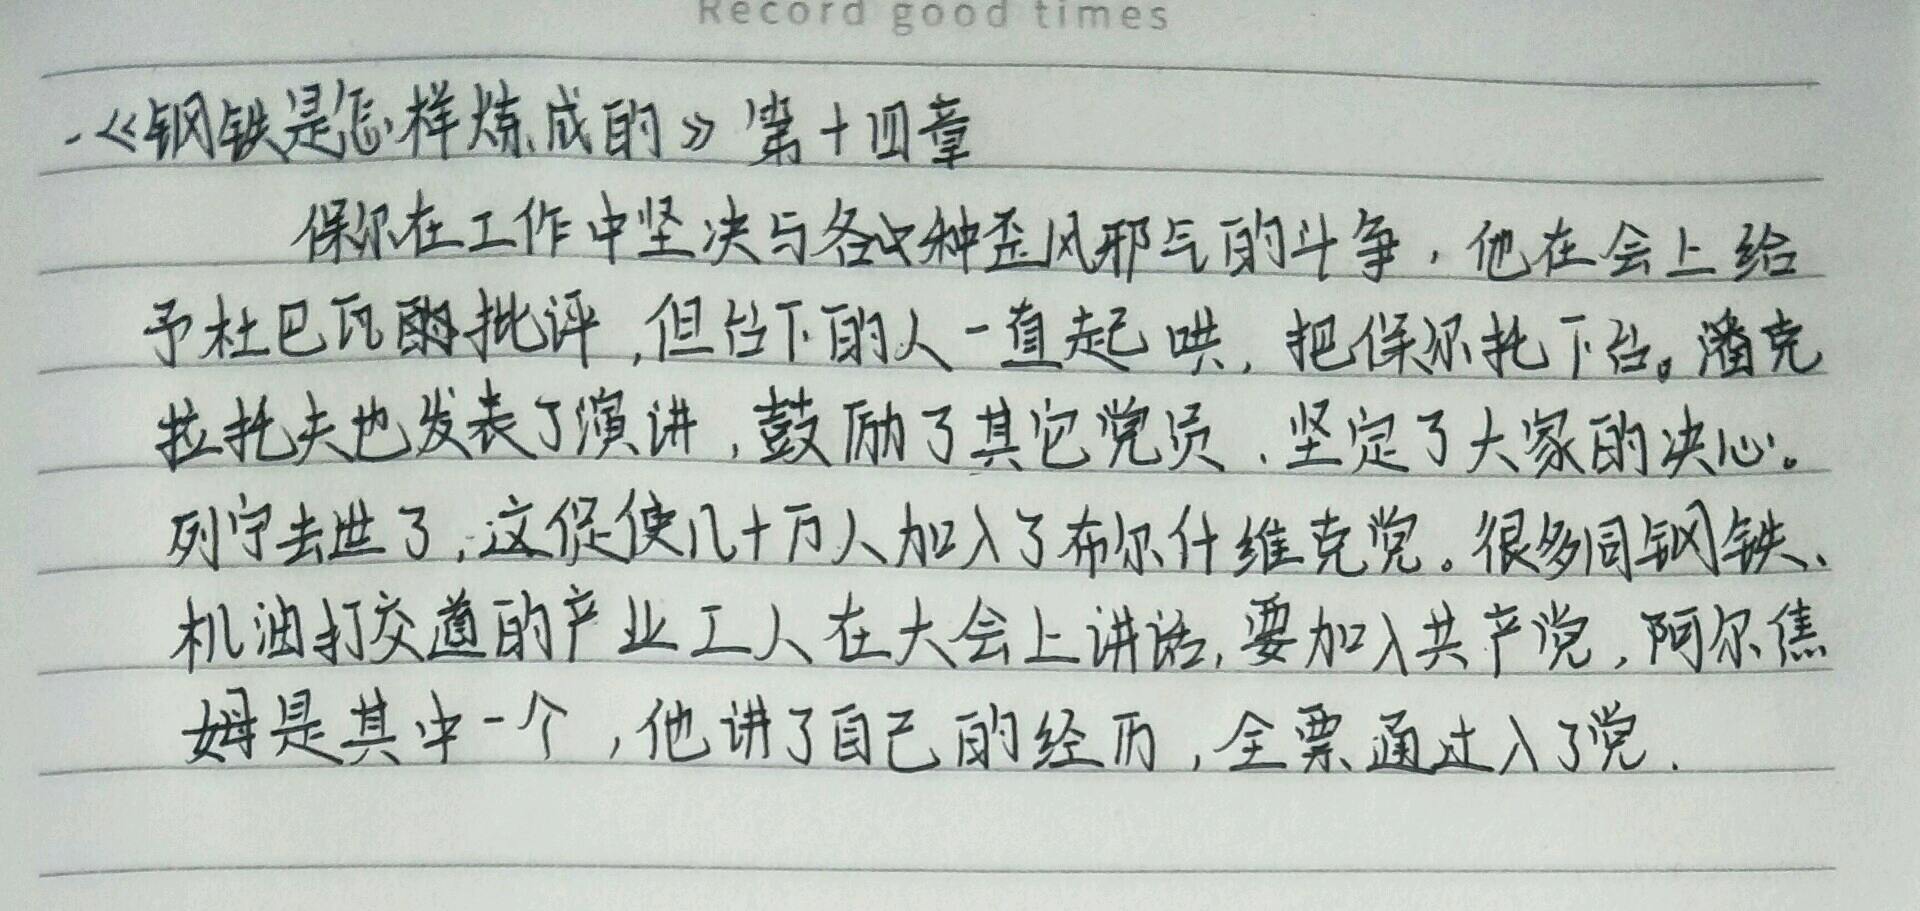 Record good times
·《钢铁是怎样炼成的》第十四章
保尔在工作中坚决与各种歪风邪气的斗争，他在会上给
予杜巴瓦批评，但台下的人一直起哄，把保尔扥下台。潘克
拉托夫也发表了演讲，鼓励了其它党员，坚定了大家的决心。
列宁去世了，这促使几十万人加入了布尔什维克党。很多同钢铁、
机油打交道的产业工人在大会上讲话，要加入共产党，阿尔焦
姆是其中一个，他讲了自己的经历，全票通过入了党.